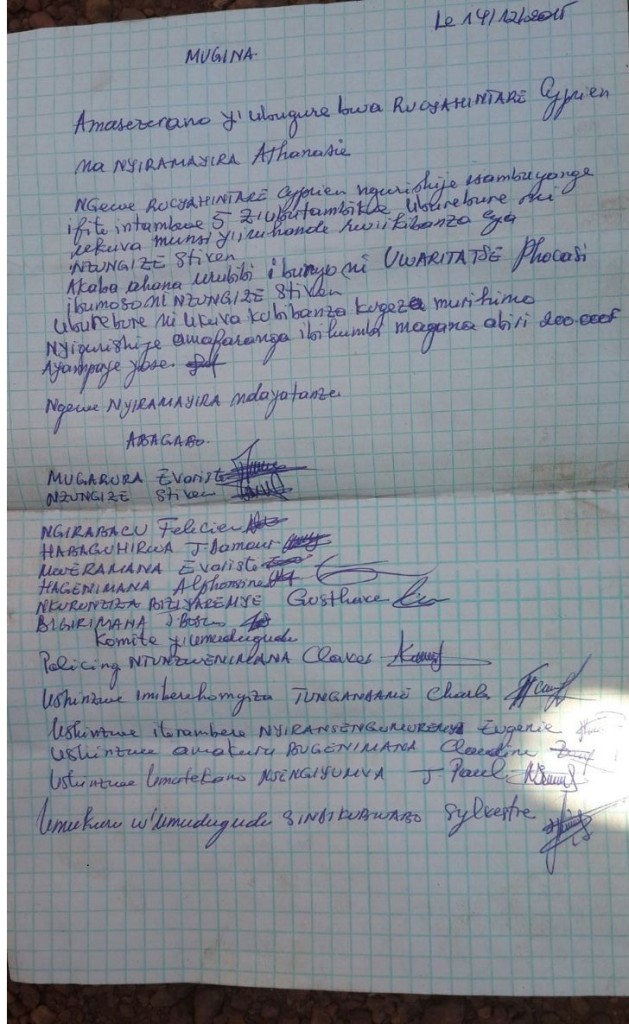 Le 14/12/2015
MUGINA.
Amasezerano y'ubugure bwa RUGYAHINTARE Cyprien
na NYIRAMAYIRA Athanasie
NGewe RUGYAHINTARE Cyprien ngurishije isambu yange
ifite intambwe 5 z'ubutambike uburebure ni
ukuva munsi y'uruhande rw'ikibanza cya
NZUNGIZE Stiven
Akaba ahana urubibi iburyo ni UWARITATSE Phocasi
ibumoso ni NZUNGIZE Stiven
Uburebure ni ukuva kukibanza kugeza murihimo
Nyigurishije amafaranga ibihumbi magana abiri 200.000F
Ayampaye yose.
Ngewe NYIRAMAYIRA ndayatanze
ABAGABO.
MUGARURA Evariste
NZUNGIZE Stiven
NGIRABACU Felecien
HABAGUHIRWA J.Damour
MWERAMANA Evariste
HAGENIMANA Alphonsine
NKURUNZIZA BIZIYAREMYE Gusthave
BIGIRIMANA J Bosco
Komite y'umudugudu
Policing NTUNZWENIMANA Claver
Ushinzwe imiberehomyiza TUNGANBAME Charls
Ushinzwe iterambere Eugenie
Ushinzwe amakuru BUGENIMANA Claudine
Ushinzwe Umutekano NSENGIYUMVA J Paul
Umukuru w'Umudugudu SINDIKUBWABO Sylvestre